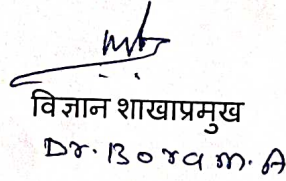 विज्ञान शाखाप्रमुख
Dr. Bora m. A